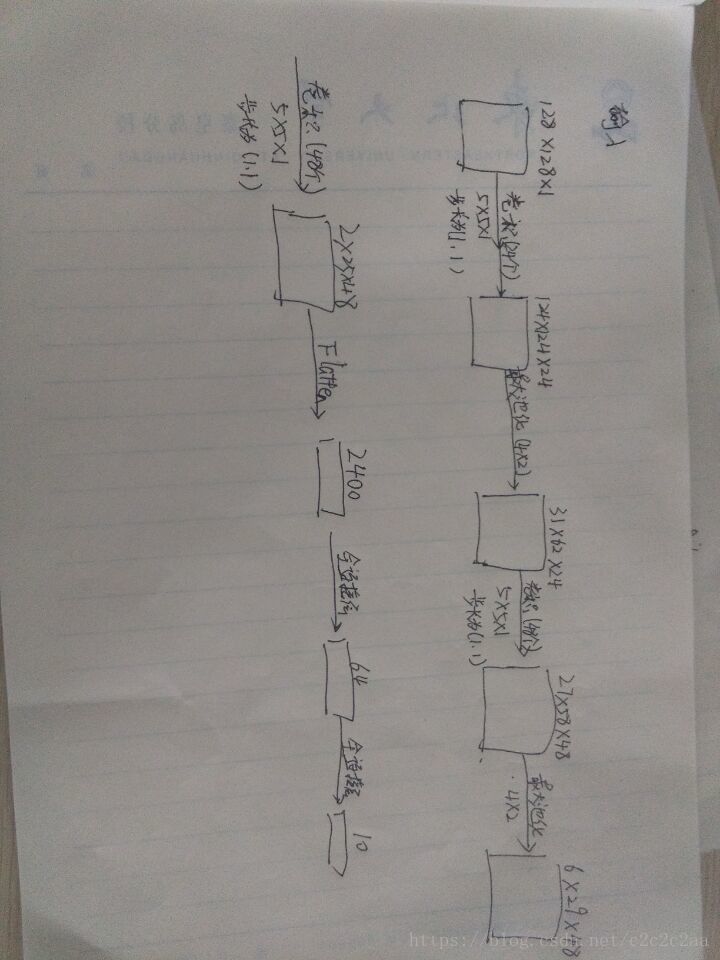 输入
128×128×1
卷积(24个)
5×5×1
步长为(1,1)
124×124×24
最大池化(4×2)
31×62×24
卷积(48个)
5×5×1
步长为(1,1)
27×58×48
最大池化
4×2
6×29×48
卷积(48个)
5×5×1
步长为(1,1)
2×25×48
Flatten
2400
全连接层
64
全连接层
10
https://blog.csdn.net/c2c2c2aa